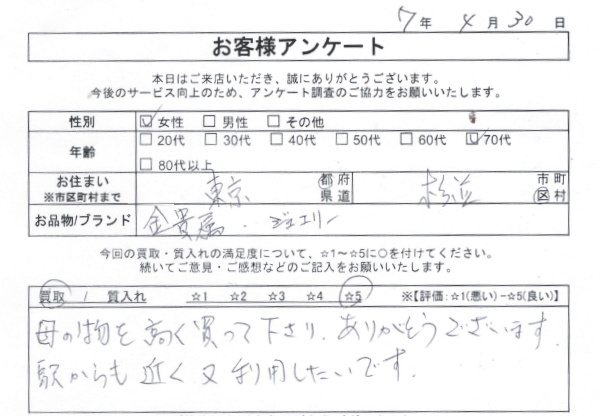 7年 4月 30日
お客様アンケート
本日はご来店いただき、誠にありがとうございます。
今後のサービス向上のため、アンケート調査のご協力をお願いいたします。
性別 ☑女性 □男性 □その他
年齢 □20代 □30代 □40代 □50代 □60代 ☑70代
□80代以上
お住まい 東京 都府 杉並 市町
※市区町村まで 県道 区村
お品物/ブランド 金貴属.ジュエリー
今回の買取・質入れの満足度について、☆1～☆5に○を付けてください。
続いてご意見・ご感想などのご記入をお願いいたします。
買取 / 質入れ ☆1 ☆2 ☆3 ☆4 ☆5 ※【評価:☆1(悪い)−☆5(良い)】
母の物を高く買って下さり、ありがとうございます.
駅からも近く又利用したいです.